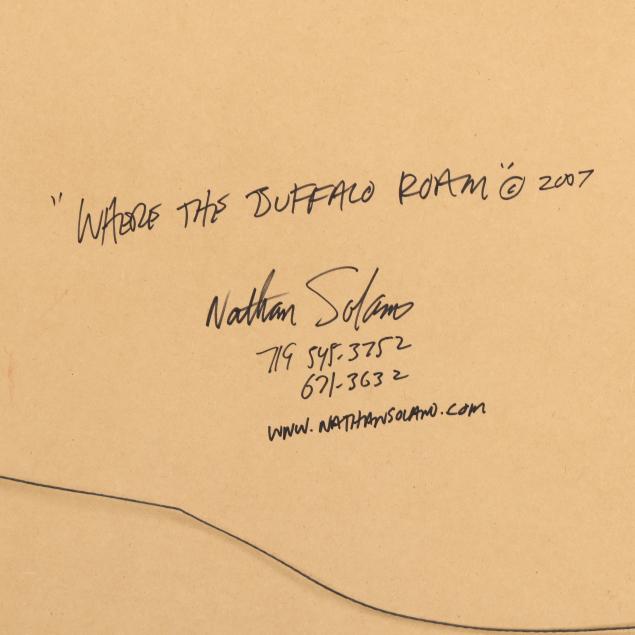 "WHERE THE BUFFALO ROAM" © 2007
Nathan Solano
719 545-3752
671-3632
WWW.NATHANSOLANO.COM